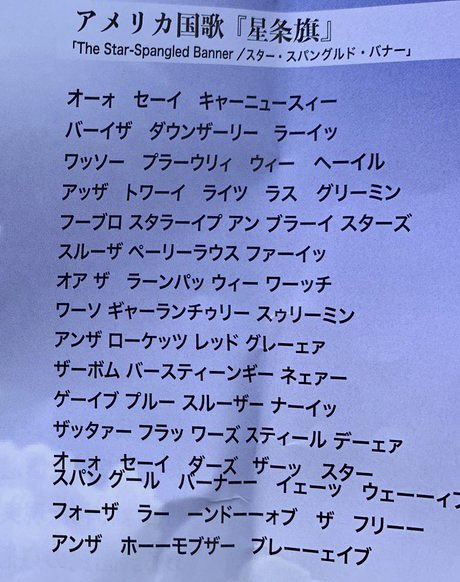 アメリカ国歌『星条旗』
「The Star-Spangled Banner /スター・スパングルド・バナー」
オーォ　セーイ　キャーニュースィー
バーイザ　ダウンザーリー　ラーイッ
ワッソー　プラーウリィ　ウィー　ヘーイル
アッザ　トワーイ　ライツ　ラス　グリーミン
フーブロ スタラーイプ アン ブラーイ スターズ
スルーザ ペーリーラウス ファーイッ
オア ザ　ラーンパッ ウィー ワーッチ
ワーソ ギャーランチゥリー スゥリーミン
アンザ ローケッツ レッド グレーェア
ザーボム バースティーンギー ネェアー
ゲーイブ プルー スルーザー ナーイッ
ザッタァー フラッ ワーズ スティール デーェア
オーォ　セーイ　ダーズ　ザーッ　スター
スパン グール　バーナーー　イェーツ　ウェーーィブ
フォーザ　ラー　ーンドーーォブ　ザ　フリーー
アンザ　ホーーモブザー　ブレーーェイブ